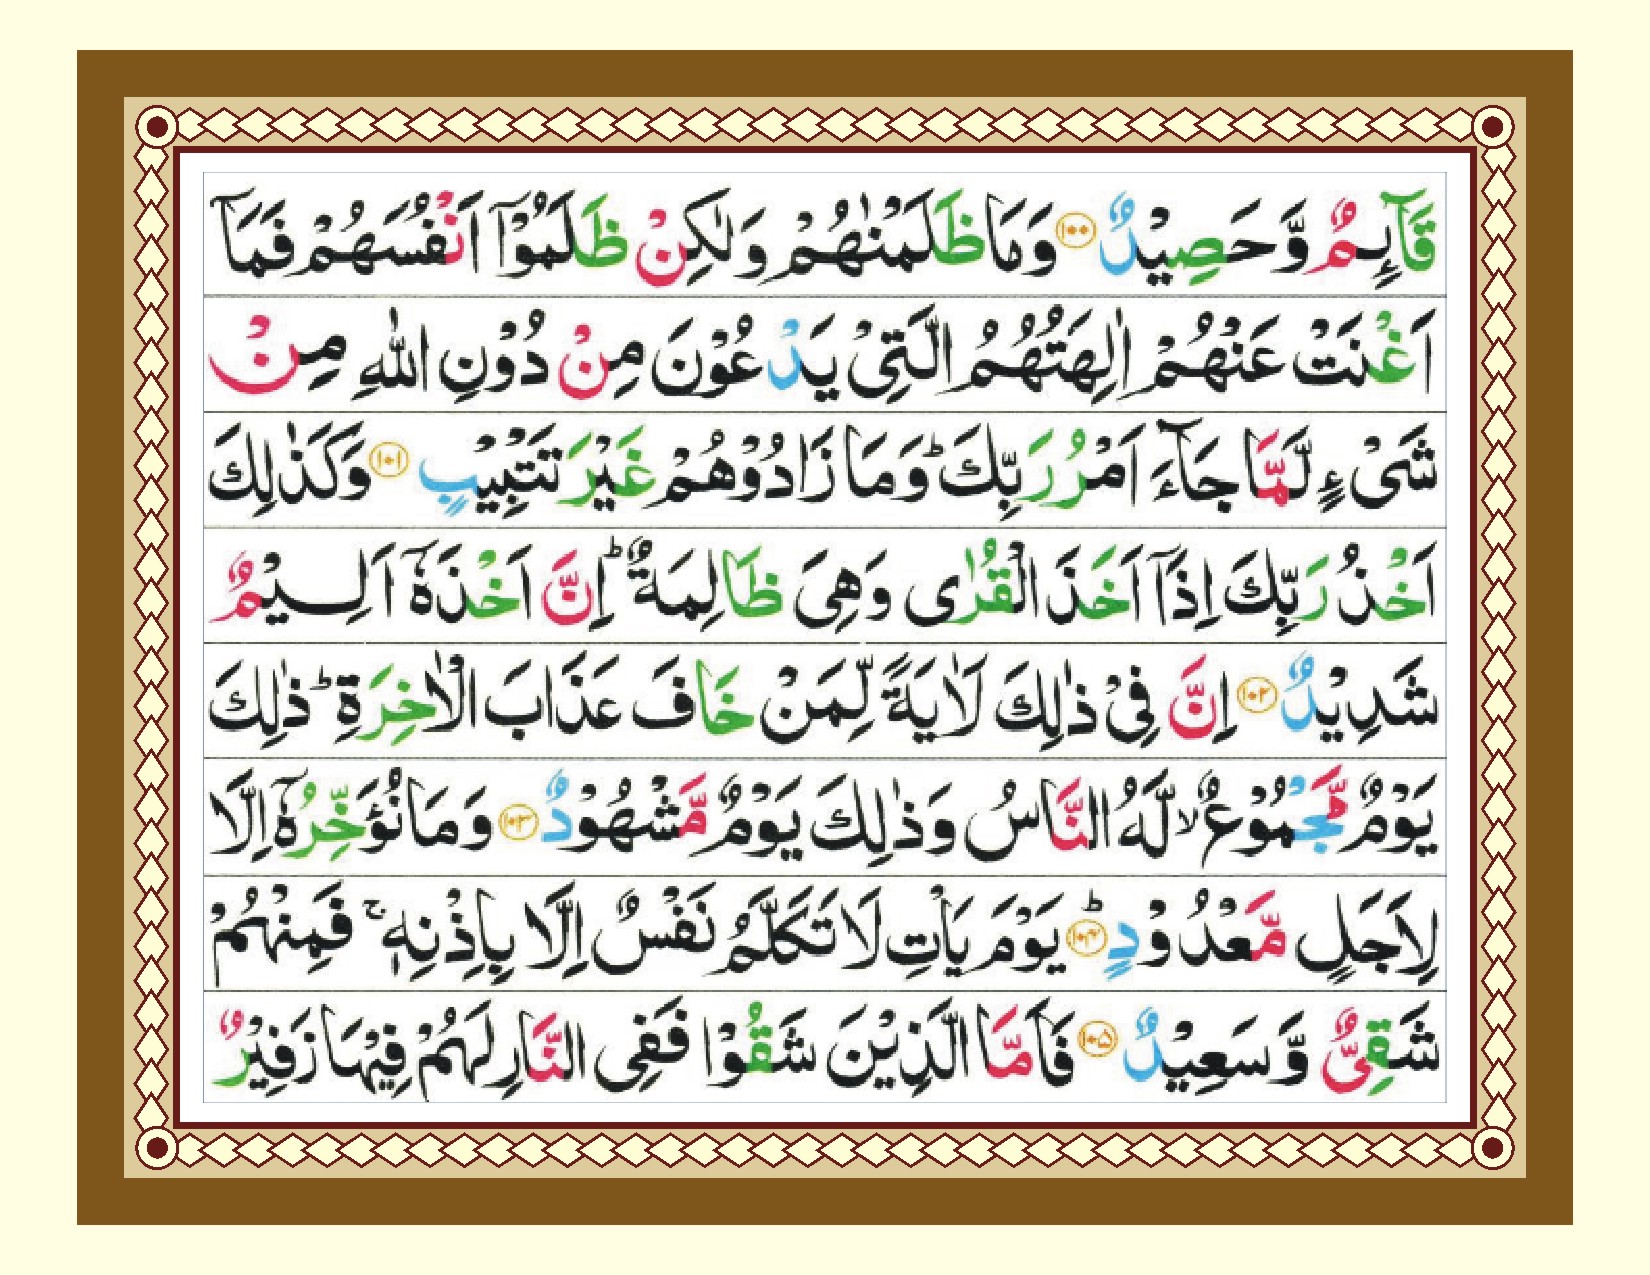 قَآئِمٌ وَّ حَصِيْدٌ ﴿۱۰۰﴾ وَمَا ظَلَمْنٰهُمْ وَلٰكِنْ ظَلَمُوْۤا اَنْفُسَهُمْ فَمَاۤ
اَغْنَتْ عَنْهُمْ اٰلِهَتُهُمُ الَّتِیْ يَدْعُوْنَ مِنْ دُوْنِ اللّٰهِ مِنْ
شَیْءٍ لَّمَّا جَآءَ اَمْرُ رَبِّكَ ؕ وَمَا زَادُوْهُمْ غَيْرَ تَتْبِيْبٍ ﴿۱۰۱﴾ وَكَذٰلِكَ
اَخْذُ رَبِّكَ اِذَاۤ اَخَذَ الْقُرٰی وَهِیَ ظَالِمَةٌ ؕ اِنَّ اَخْذَهٗۤ اَلِيْمٌ
شَدِيْدٌ ﴿۱۰۲﴾ اِنَّ فِیْ ذٰلِكَ لَاٰيَةً لِّمَنْ خَافَ عَذَابَ الْاٰخِرَةِ ؕ ذٰلِكَ
يَوْمٌ مَّجْمُوْعٌ ۙ لَّهُ النَّاسُ وَذٰلِكَ يَوْمٌ مَّشْهُوْدٌ ﴿۱۰۳﴾ وَمَا نُؤَخِّرُهٗۤ اِلَّا
لِاَجَلٍ مَّعْدُوْدٍ ﴿۱۰۴﴾ؕ يَوْمَ يَاْتِ لَا تَكَلَّمُ نَفْسٌ اِلَّا بِاِذْنِهٖ ۚ فَمِنْهُمْ
شَقِیٌّ وَّ سَعِيْدٌ ﴿۱۰۵﴾ فَاَمَّا الَّذِيْنَ شَقُوْا فَفِی النَّارِ لَهُمْ فِيْهَا زَفِيْرٌ